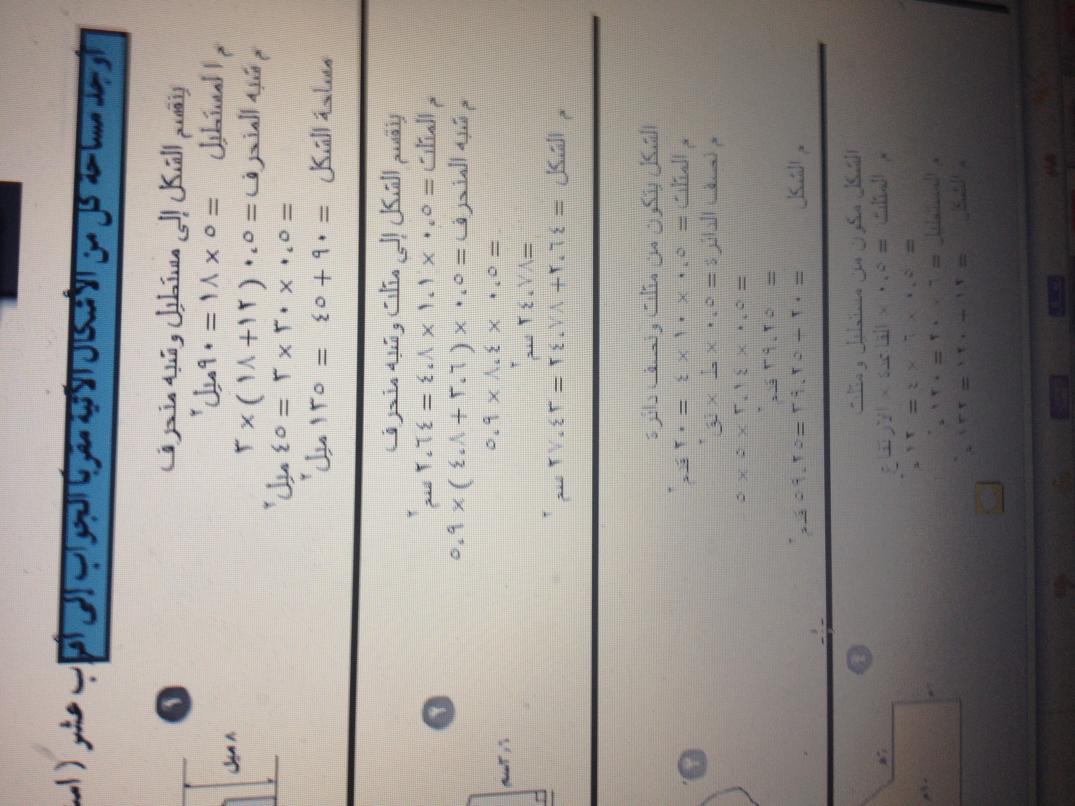 أوجد مساحة كل من الأشكال الآتية مقربا الجواب إلى أقرب عشر
١
ينقسم الشكل إلى مستطيل وشبه منحرف
م المستطيل = ٥ × ١٨ = ٩٠ ميل٢
م شبه المنحرف = ٠.٥ ( ١٢+ ١٨ ) × ٣
= ٠.٥ × ٣٠ × ٣ = ٤٥ ميل٢
مساحة الشكل = ٩٠ + ٤٥ = ١٣٥ ميل٢
٨ ميل
٢
ينقسم الشكل إلى مثلث وشبه منحرف
م المثلث = ٠.٥ × ١.١ × ٤.٨ = ٢.٦٤ سم٢
م شبه المنحرف = ٠.٥ × ( ٣.٦ + ٤.٨ ) × ٥.٩
= ٠.٥ × ٨.٤ × ٥.٩
=٢٤.٧٨ سم٢
م الشكل = ٢.٦٤ + ٢٤.٧٨ = ٢٧.٤٣ سم٢
٣,٦سم
٣
الشكل يتكون من مثلث ونصف دائرة
م المثلث = ٠.٥ × ١٠ × ٤ = ٢٠ قدم٢
م نصف الدائرة = ٠.٥ × ط × نق٢
= ٠.٥ × ٣.١٤ × ٥ × ٥
= ٣٩.٢٥ قدم٢
م الشكل = ٢٠ + ٣٩.٢٥ = ٥٩.٢٥ قدم٢
٤
الشكل مكون من مستطيل ومثلث
م المثلث = ٠.٥ × القاعدة × الارتفاع
= ٠.٥ × ٦ × ٤ = ١٢ م٢
م المستطيل = ٦ × ٢٠ = ١٢٠ م٢
م الشكل = ١٢ + ١٢٠ = ١٣٢ م٢